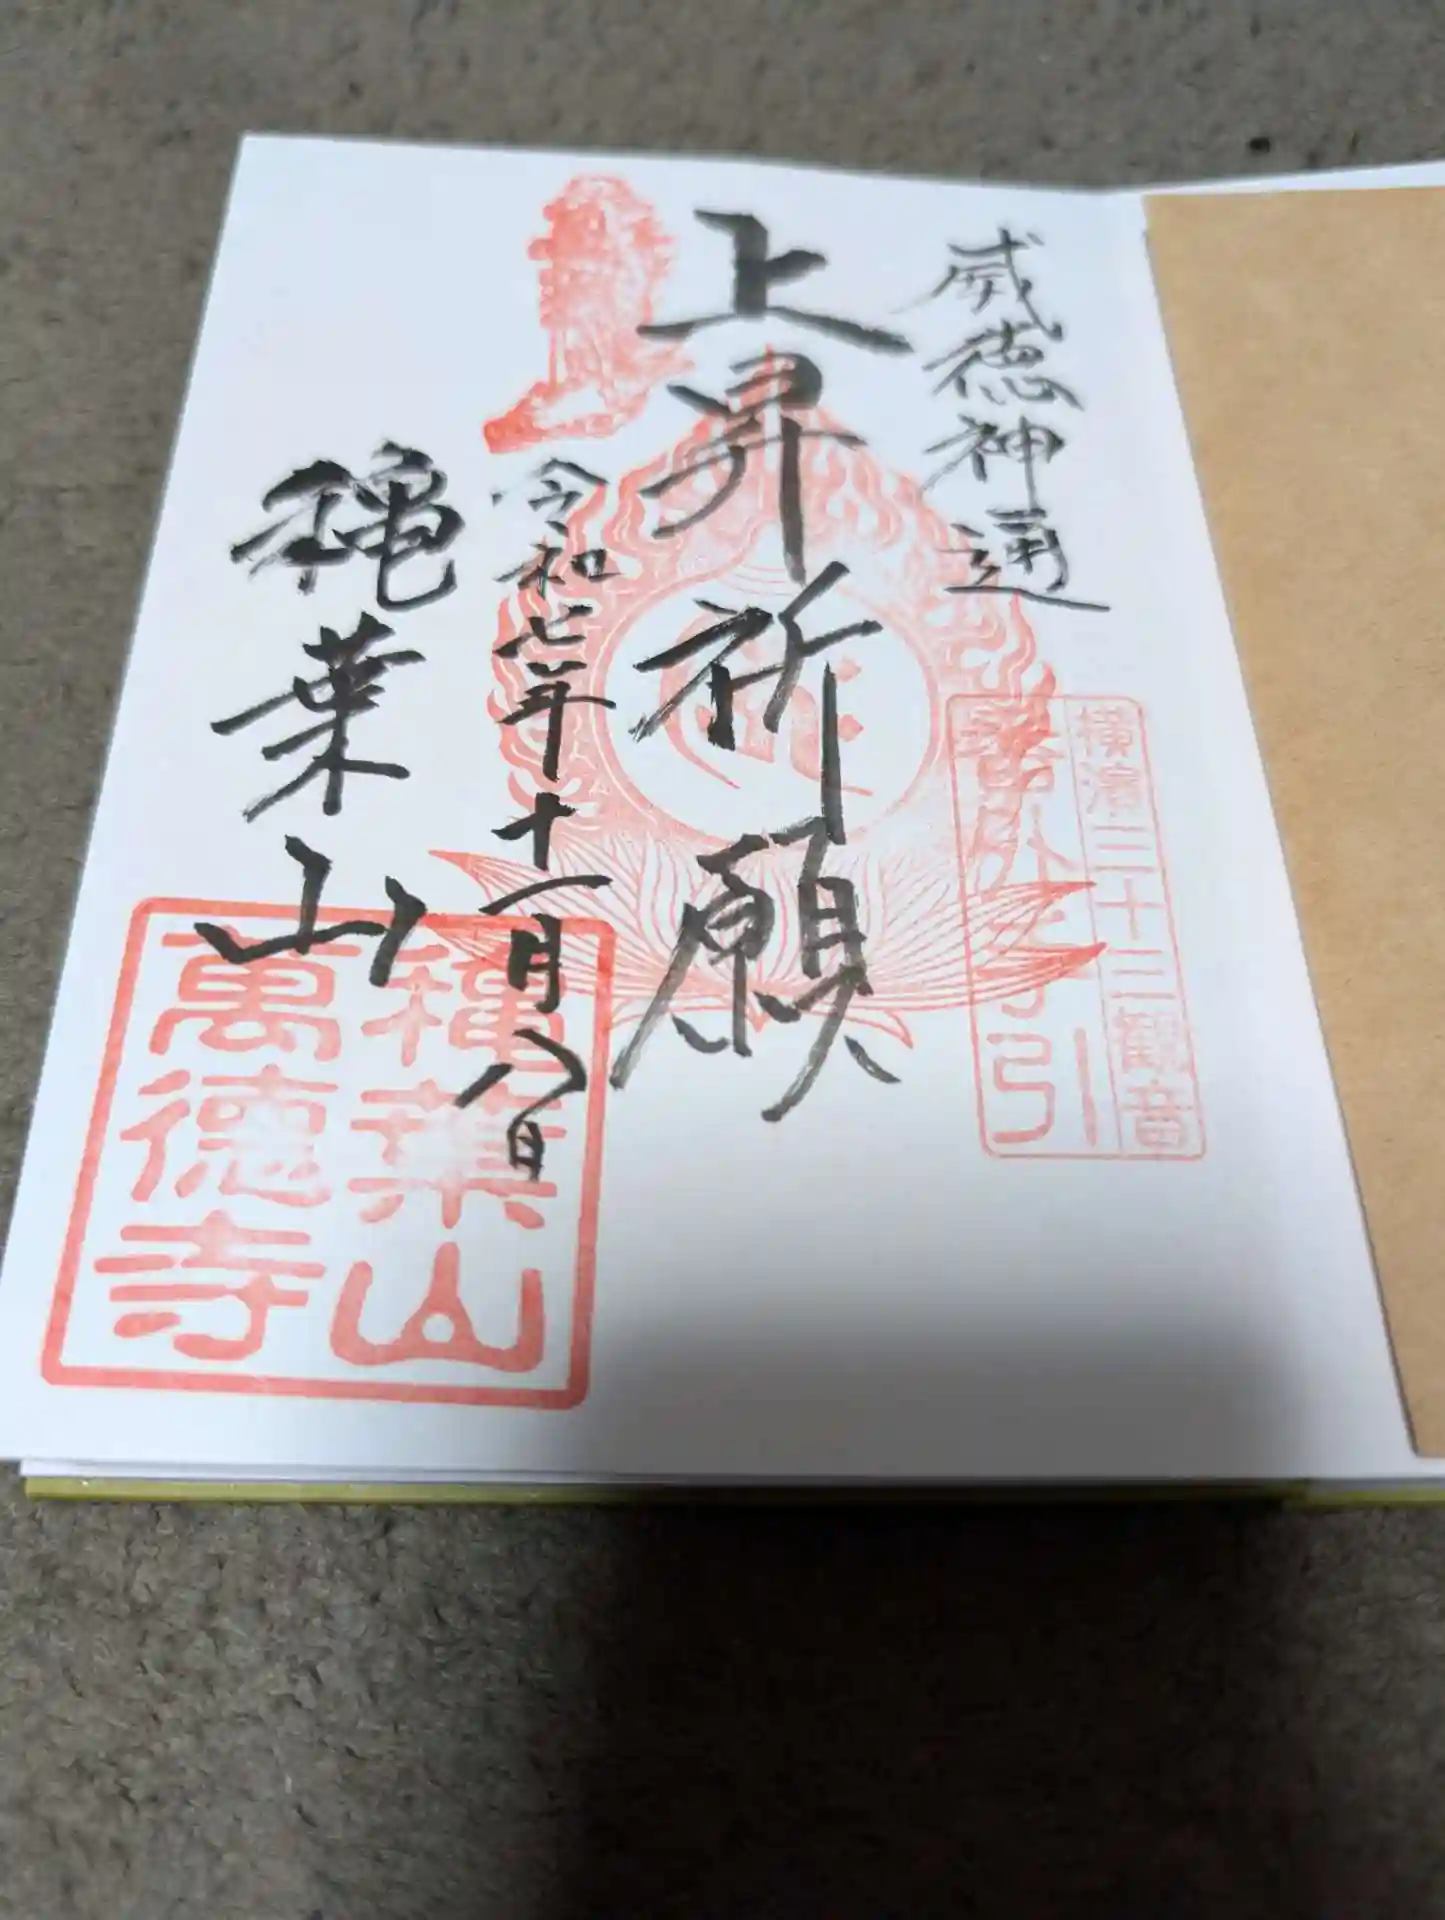 威徳神通
横濱三十三観音
上昇祈願
令和七年十一月八日
穐葉山
穐葉山
萬徳寺